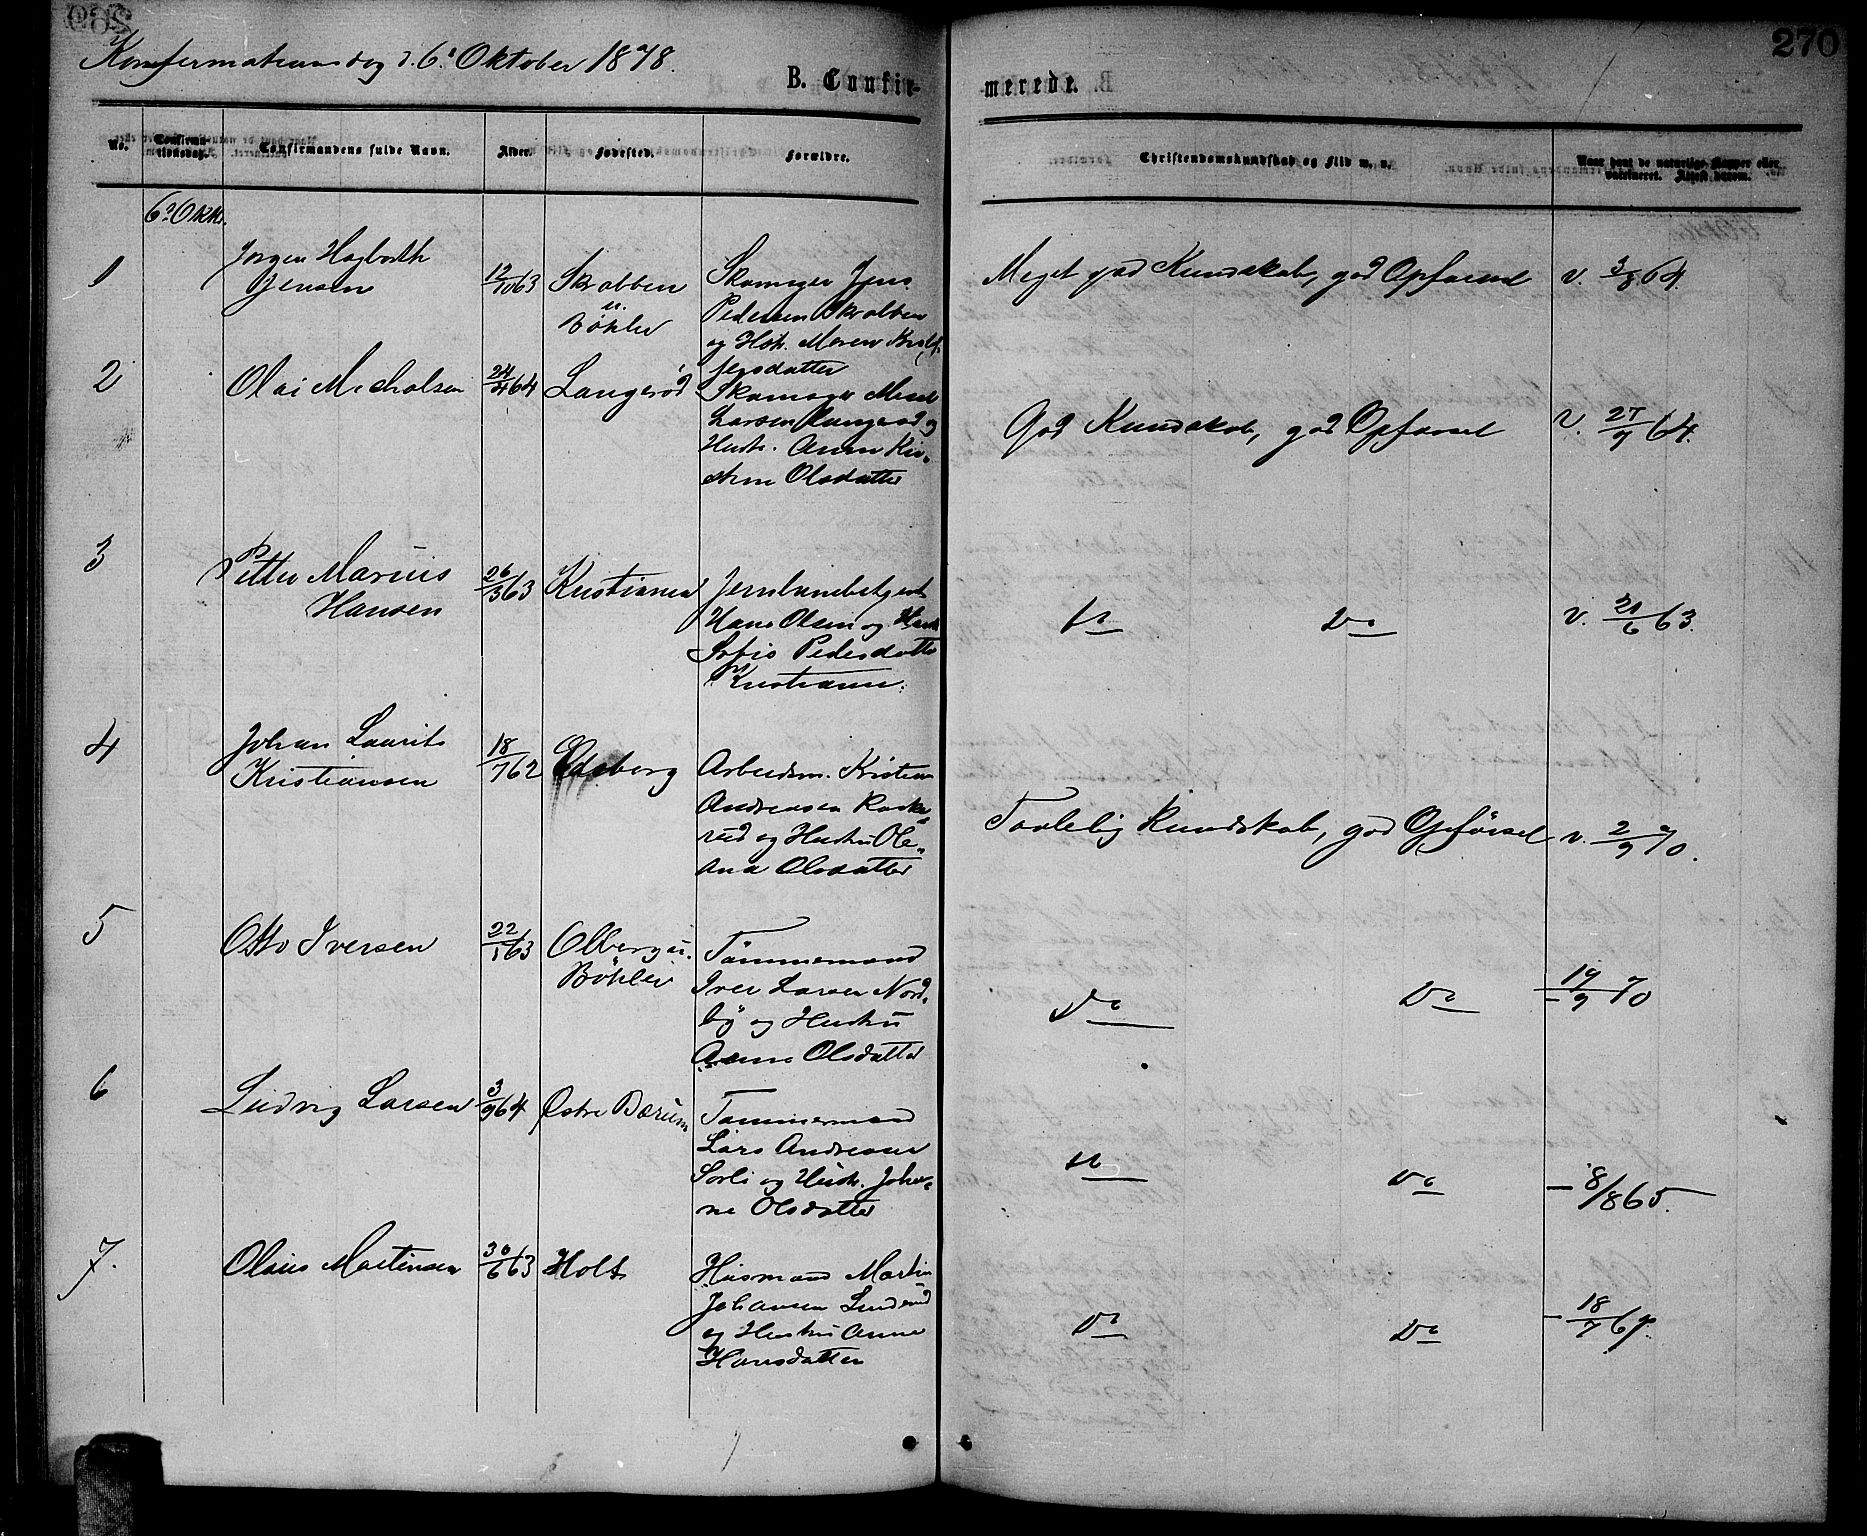 Konfirmationsdag d. 6' Oktober 1878.
270
B. Confir-
merede.
No.
Confirma-
tionsdag.
Confirmandens fulde Navn.
Alder.
Fødested.
Forældre.
Christendomskundskab og Flid m. v.
Naar havt de naturlige Kopper eller
vaccineret. Attest derom.
6' Oktr.
1
Jørgen Hagbarth
Jensen
12/10 63
Skrabben
u.
Bøhler
Skomager Jens
Pedersen Skrabben
og Hstr. Maren
datter
Meget god Kundskab, god Opførsel
v. 3/8 64.
2
Olai Michalsen
24/4 64
Langerød
Skomager
Larsen Langerød og
Hustr. Anne Kir-
stine Olsdatter
God Kundskab, god Opførsel
v. 27/9 64.
3
Petter Marius
Hansen
26/3 63
Kristiania
Jernbanebetjent
Hans Olsen og Hustr
Sofie Pedersdatter
Kristiania.
do
Do
v. 21/6 63.
4
Johan Laurits
Kristiansen
18/7 62
Edsberg
Arbeidsm. Kristian
Andreasen
rud og Hustru Ole-
ana Olsdatter
Taalelig Kundskab, god Opførsel
v. 2/9 70.
5
Otto Iversen
22/1 63
Olberg u.
Bøhler
Tømmermand
Iver Larsen Nord-
by og Hustru
Anne Olsdatter
Do
Do
- 19/9 70
6
Ludvig Larsen
3/9 64
Østre Bærum
Tømmermand
Lars Andreasen
Sorli og Hustr. Joha-
ne Olsdatter
do
Do
- 8/8 65.
7.
Olaus Martinsen
30/6 63
Holt
Husmand Martin
Johansen Linderud
og Hustru Anne
Hansdatter
Do
Do
- 18/7 67.